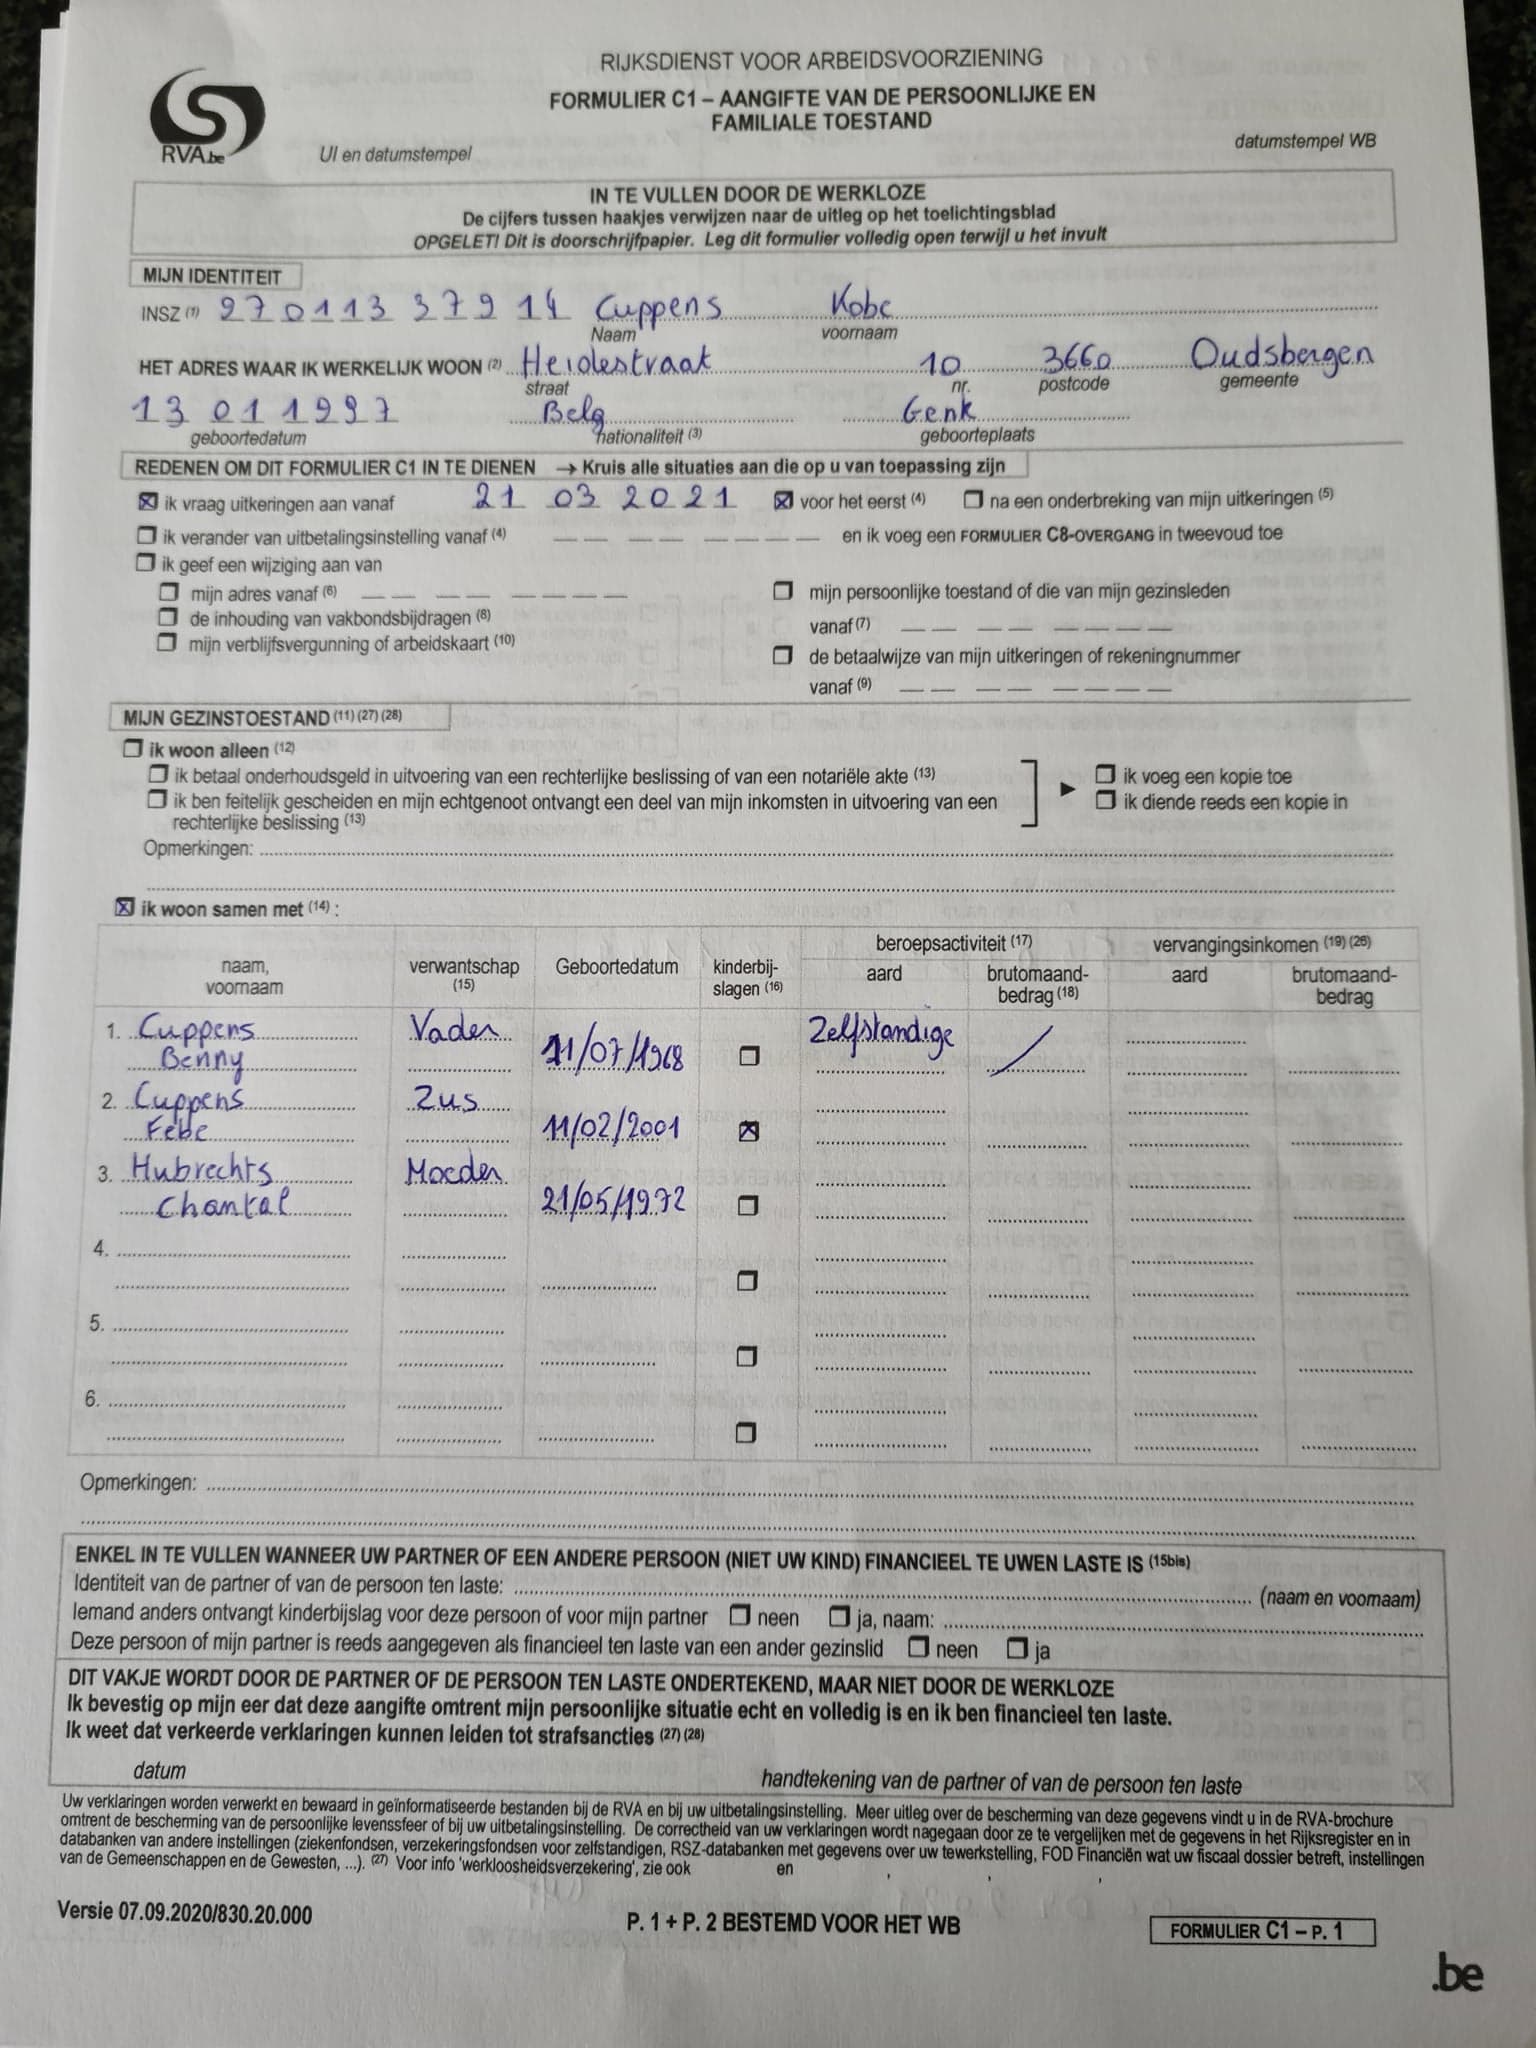 RIJKSDIENST VOOR ARBEIDSVOORZIENING
FORMULIER C1 – AANGIFTE VAN DE PERSOONLIJKE EN
FAMILIALE TOESTAND
RVA.be
UI en datumstempel
datumstempel WB
IN TE VULLEN DOOR DE WERKLOZE
De cijfers tussen haakjes verwijzen naar de uitleg op het toelichtingsblad
OPGELET! Dit is doorschrijfpapier. Leg dit formulier volledig open terwijl u het invult
MIJN IDENTITEIT
INSZ (1) 970113 379 14 Cuppens Kobe
Naam voornaam
HET ADRES WAAR IK WERKELIJK WOON (2) Heidestraat 10 3660 Oudsbergen
straat nr. postcode gemeente
13 01 1997 Belg Genk
geboortedatum nationaliteit (3) geboorteplaats
REDENEN OM DIT FORMULIER C1 IN TE DIENEN → Kruis alle situaties aan die op u van toepassing zijn
☒ ik vraag uitkeringen aan vanaf 21 03 2021 ☒ voor het eerst (4) ☐ na een onderbreking van mijn uitkeringen (5)
☐ ik verander van uitbetalingsinstelling vanaf (4) __ __ ____ en ik voeg een FORMULIER C8-OVERGANG in tweevoud toe
☐ ik geef een wijziging aan van
☐ mijn adres vanaf (6) ☐ mijn persoonlijke toestand of die van mijn gezinsleden
☐ de inhouding van vakbondsbijdragen (8) vanaf (7)
☐ mijn verblijfsvergunning of arbeidskaart (10) ☐ de betaalwijze van mijn uitkeringen of rekeningnummer
vanaf (9)
MIJN GEZINSTOESTAND (11) (27) (28)
☐ ik woon alleen (12)
☐ ik betaal onderhoudsgeld in uitvoering van een rechterlijke beslissing of van een notariële akte (13) ☐ ik voeg een kopie toe
☐ ik ben feitelijk gescheiden en mijn echtgenoot ontvangt een deel van mijn inkomsten in uitvoering van een ☐ ik diende reeds een kopie in
rechterlijke beslissing (13)
Opmerkingen:
☒ ik woon samen met (14) :
beroepsactiviteit (17) vervangingsinkomen (19) (26)
naam, voornaam verwantschap (15) Geboortedatum kinderbij-slagen (16) aard brutomaand-bedrag (18) aard brutomaand-bedrag
1. Cuppens Vader Zelfstandige
Benny 11/07/1968 ☐ /
2. Cuppens Zus
Febe 11/02/2001 ☒
3. Hubrechts Moeder
Chantal 21/05/1972 ☐
4. ☐
5. ☐
6. ☐
Opmerkingen:
ENKEL IN TE VULLEN WANNEER UW PARTNER OF EEN ANDERE PERSOON (NIET UW KIND) FINANCIEEL TE UWEN LASTE IS (15bis)
Identiteit van de partner of van de persoon ten laste: (naam en voornaam)
Iemand anders ontvangt kinderbijslag voor deze persoon of voor mijn partner ☐ neen ☐ ja, naam:
Deze persoon of mijn partner is reeds aangegeven als financieel ten laste van een ander gezinslid ☐ neen ☐ ja
DIT VAKJE WORDT DOOR DE PARTNER OF DE PERSOON TEN LASTE ONDERTEKEND, MAAR NIET DOOR DE WERKLOZE
Ik bevestig op mijn eer dat deze aangifte omtrent mijn persoonlijke situatie echt en volledig is en ik ben financieel ten laste.
Ik weet dat verkeerde verklaringen kunnen leiden tot strafsancties (27) (28)
datum handtekening van de partner of van de persoon ten laste
Uw verklaringen worden verwerkt en bewaard in geïnformatiseerde bestanden bij de RVA en bij uw uitbetalingsinstelling. Meer uitleg over de bescherming van deze gegevens vindt u in de RVA-brochure
omtrent de bescherming van de persoonlijke levenssfeer of bij uw uitbetalingsinstelling. De correctheid van uw verklaringen wordt nagegaan door ze te vergelijken met de gegevens in het Rijksregister en in
databanken van andere instellingen (ziekenfondsen, verzekeringsfondsen voor zelfstandigen, RSZ-databanken met gegevens over uw tewerkstelling, FOD Financiën wat uw fiscaal dossier betreft, instellingen
van de Gemeenschappen en de Gewesten, ...). (27) Voor info 'werkloosheidsverzekering', zie ook en
Versie 07.09.2020/830.20.000 P. 1 + P. 2 BESTEMD VOOR HET WB FORMULIER C1 – P. 1
.be